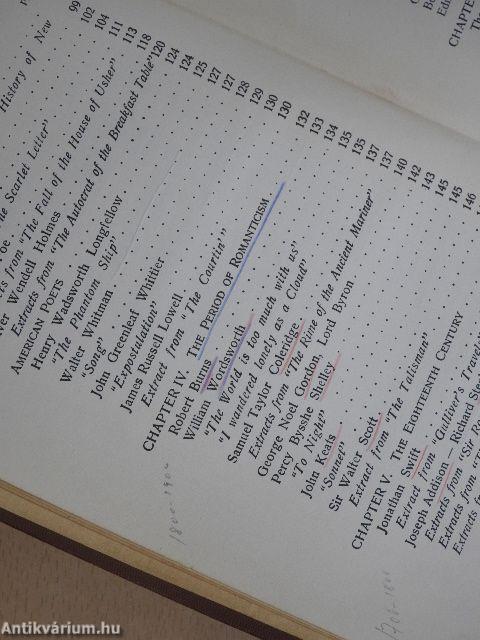 History of New 99
102
Scarlet Letter" 104
oe 111
from "The Fall of the House of Usher" 113
Wendell Holmes 118
Extracts from "The Autocrat of the Breakfast Table" 120
AMERICAN POETS 124
Henry Wadsworth Longfellow 124
"The Phantom Ship" 125
Walter Whitman 127
"Song" 127
John Greenleaf Whittier 128
"Expostulation" 129
James Russell Lowell 130
Extract from "The Courtin'" 130
CHAPTER IV. THE PERIOD OF ROMANTICISM 132
Robert Burns 133
William Wordsworth 134
"The World is too much with us" 135
"I wandered lonely as a Cloud" 135
Samuel Taylor Coleridge 137
Extracts from "The Rime of the Ancient Mariner" 137
George Noel Gordon, Lord Byron 140
Percy Bysshe Shelley 142
"To Night" 143
John Keats 145
"Sonnet" 145
Sir Walter Scott 146
Extract from "The Talisman"
CHAPTER V. THE EIGHTEENTH CENTURY
Jonathan Swift
Extract from "Gulliver's Travels
Joseph Addison — Richard Ste
Extracts from "Sir Ro
Extracts from "T
Extracts f
CHAPTER
Antikvárium.hu